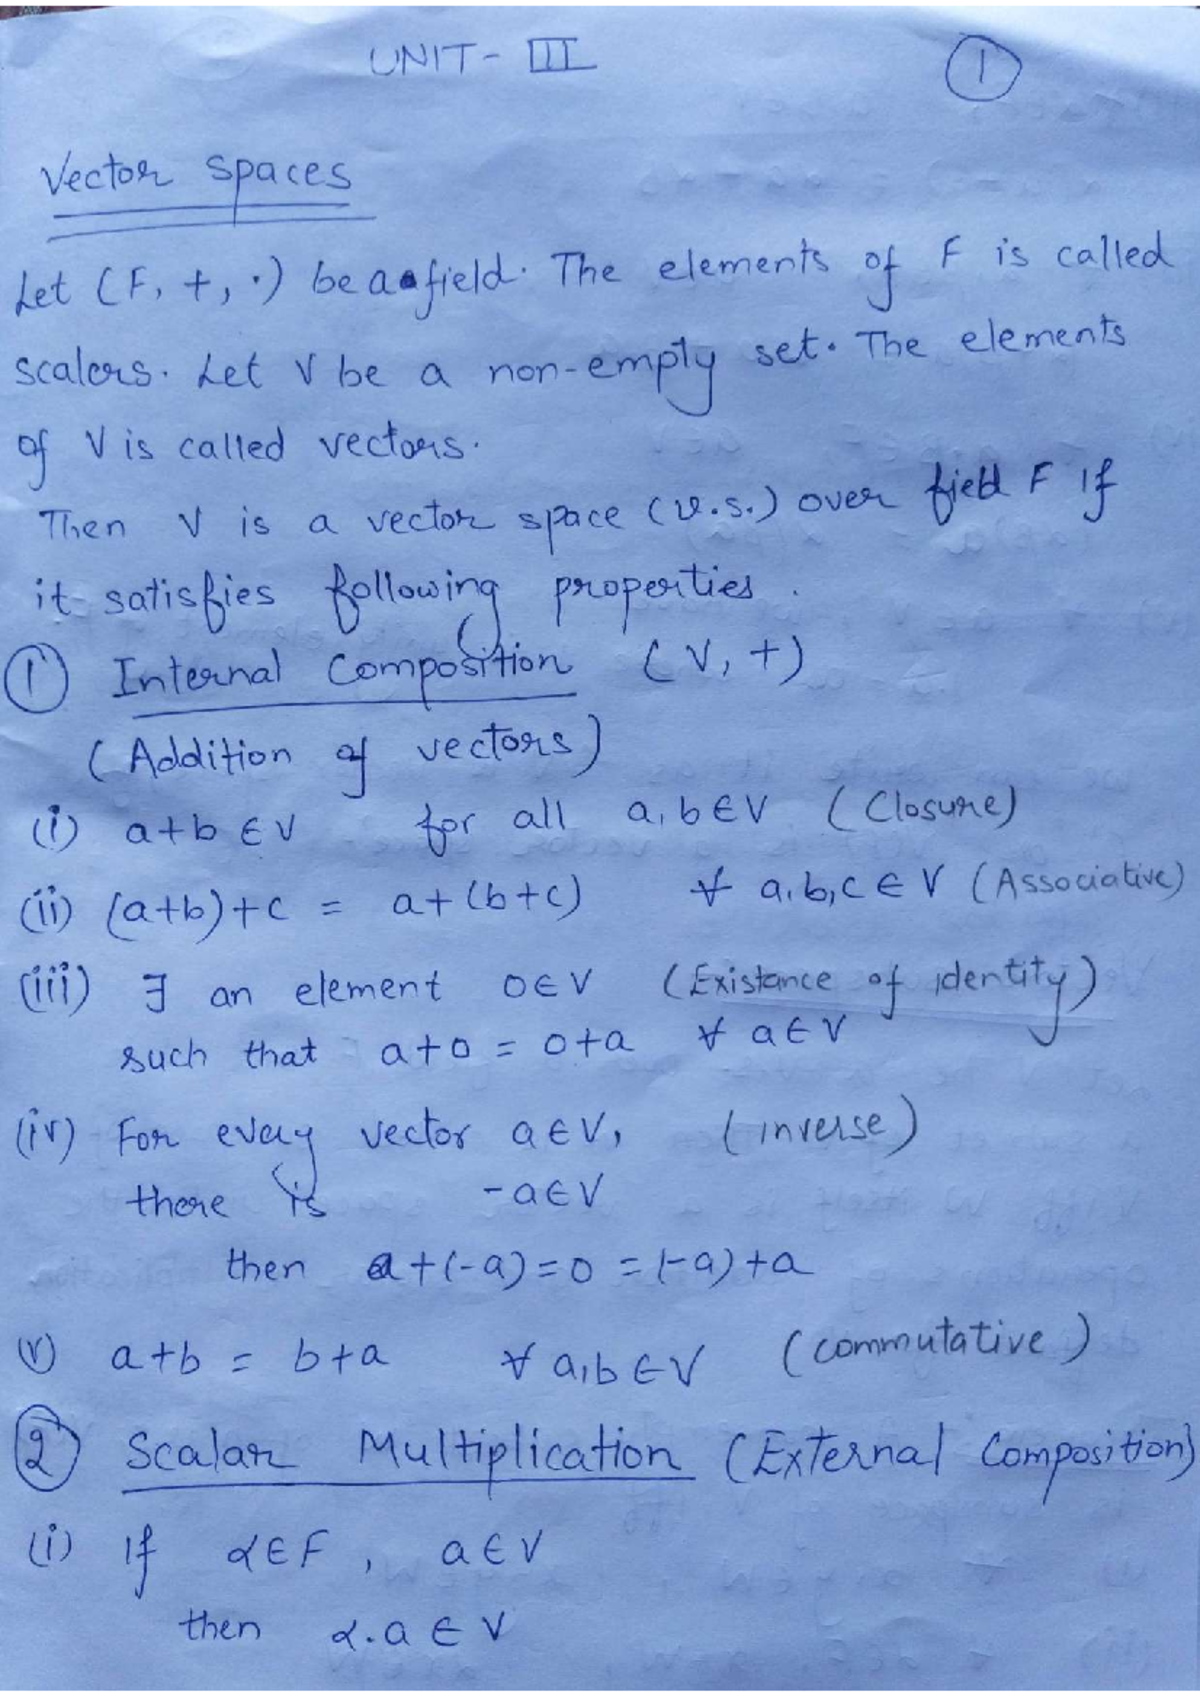 UNIT - III
1
Vector spaces
Let (F, +, ·) be a field. The elements of F is called
scalers. Let V be a non-empty set. The elements
of V is called vectors.
Then V is a vector space (v.s.) over field F if
it satisfies following properties.
① Internal Composition (V, +)
(Addition of vectors)
(i) a+b ∈ V for all a, b ∈ V (Closure)
(ii) (a+b)+c = a+(b+c) ∀ a,b,c ∈ V (Associative)
(iii) ∃ an element 0 ∈ V (Existance of identity)
such that a+0 = 0+a ∀ a ∈ V
(iv) For every vector a ∈ V, (inverse)
there is -a ∈ V
then a+(-a)=0 =(-a)+a
(v) a+b = b+a ∀ a,b ∈ V (commutative)
② Scalar Multiplication (External Composition)
(i) If α ∈ F, a ∈ V
then α.a ∈ V